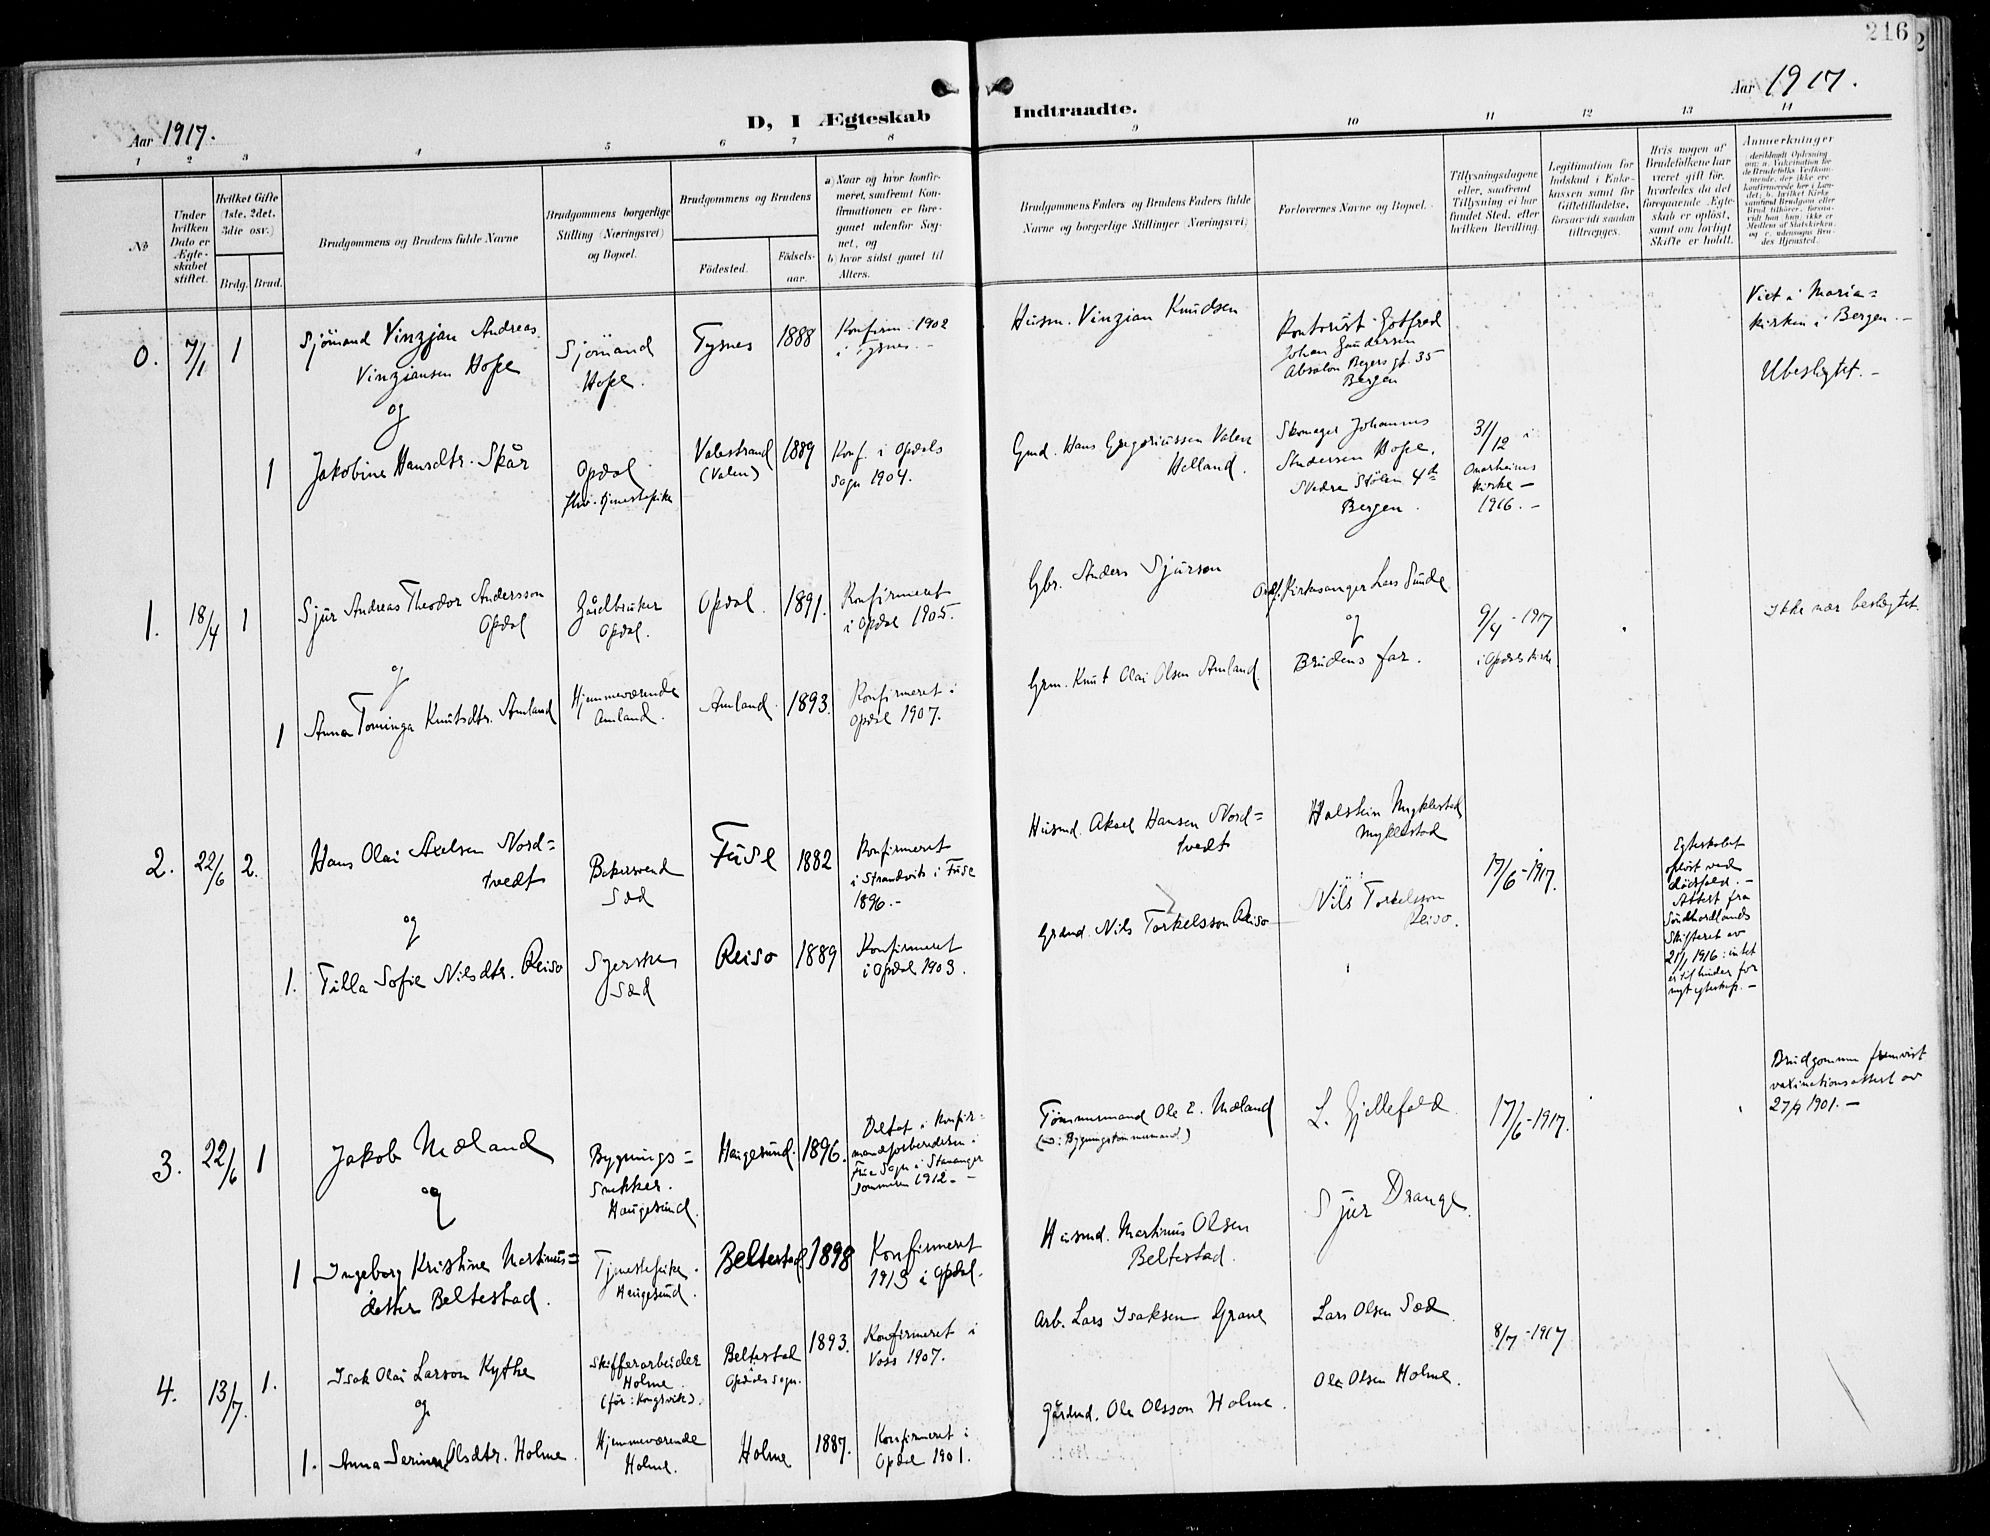 216
Aar 1917.
Aar 1917.
D, I Ægteskab Indtraadte.
1 2 3 4 5 6 7 8 9 10 11 12 13 14
No
Under hvilken Dato er Ægteskabet stiftet.
Hvilket Gifte (1ste, 2det, 3die osv.)
Brdg. Brud.
Brudgommens og Brudens fulde Navne
Brudgommens borgerlige Stilling (Næringsvei) og Bopæl.
Brudgommens og Brudens
Födested.
Födselsaar.
a) Naar og hvor konfirmeret, saafremt Konfirmationen er foregaaet udenfor Sognet, og
b) hvor sidst gaaet til Alters.
Brudgommens Faders og Brudens Faders fulde Navne og borgerlige Stillinger (Næringsvei)
Forlovernes Navne og Bopæl.
Tillysningsdagene eller, saafremt Tillysning ei har fundet Sted, efter hvilken Bevilling.
Legitimation for Indskud i Enkekassen samt for Giftetilladelse, forsaavidt saadan tiltrænges.
Hvis nogen af Brudefolkene har været gift før, hvorledes da det foregaaende Ægteskab er oplöst, samt om lovligt Skifte er holdt.
Anmærkninger
0. 7/1 1
Sjömand Vinzjan Andreas
Vinziansen Hope
og
Sjömand
Hope.
Tysnes
1888
Konfirm. 1902
i Tysnes.
Husm. Vinzian Knudsen
Kontorist Gotfred
Johan Gundersen
Absalon Beyers gt. 35
Bergen
Viet i Maria=
kirken i Bergen. -
Ubeslegtet. -
1
Jakobine Hansdtr. Skår
Opdal
Valestrand
(Valen)
1889
Konf. i Opdals
Sogn 1904.
Gmd. Hans Gregoriussen Valen
Helland.
Skomager Johannes
Andersen Hope.
Nedre Stölen 4
Bergen.
31/12 i
Onarheims
kirke -
1916. -
1. 18/4 1
Sjur Andreas Theodor Andersson
Opdal
og
Gårdbruker
Opdal.
Opdal.
1891.
Konfirmeret
i Opdal 1905.
Gbr. Anders Sjurson
Kirkesanger Lars Sunde
og
9/4 - 1917
i Opdals kirke
Ikke nær beslægtet.
1
Anna Tominga Knutsdtr. Amland
Hjemmeværende
Amland.
Amland.
1893.
Konfirmeret i
Opdal 1907.
Grm. Knut Olai Olsen Amland
Brudens far.
2. 22/6 2.
Hans Olai Axelsen Nord=
tvedt
og
Bakersvend
Sæd
Fuse
1882
Konfirmeret
i Strandvik i Fuse
1896. -
Husmd. Aksel Hansen Nord=
tvedt
Halstein Myklestad
Myklestad
17/6 - 1917.
Egteskabet
opløst ved
dødsfald. -
Attest fra
Søndhordlands
Skifteret av
21/1 1916: intet
er til hinder for
nyt egteskap. -
1.
Tilla Sofie Nilsdtr. Reiso
Syerske
Sæd
Reiso
1889
Konfirmeret
i Opdal 1903.
Grdmd. Nils Torkelsson Reiso
Nils Torkelsson
Reiso.
3. 22/6 1
Jakob Mæland
og
Bygnings=
snekker.
Haugesund.
Haugesund.
1896.
Deltat i konfir-
mandforberedelsen i
Frue Sogn i Stavanger
Sommeren 1912. -
Tömmermand Ole E. Mæland
(ɔ: Bygningstömmermand)
L. Gjellefald
17/6 - 1917.
Brudgommen fremvist
vaxinationsattest av
27/9 1901. -
1
Ingeborg Kristine Martinus=
datter Beltestad.
Tjenestepike.
Haugesund.
Beltestad
1898
Konfirmeret
1913 i Opdal.
Husmd. Martinus Olsen
Beltestad.
Sjur Drange
4. 13/7. 1.
Isak Olai Larson Kythe
og
Skifferarbeider
Holme.
(før: Kongsvik).
Beltestad
Opdals Sogn.
1893.
Konfirmeret i
Voss 1907.
Arb. Lars Isaksen Grave
Lars Olsen Sæd
8/7 - 1917
1.
Anna Serine Olsdtr. Holme
Hjemmeværende
Holme.
Holme
1887.
Konfirmeret i
Opdal 1901.
Gårdmd. Ole Olsson Holme.
Ole Olsen Holme.